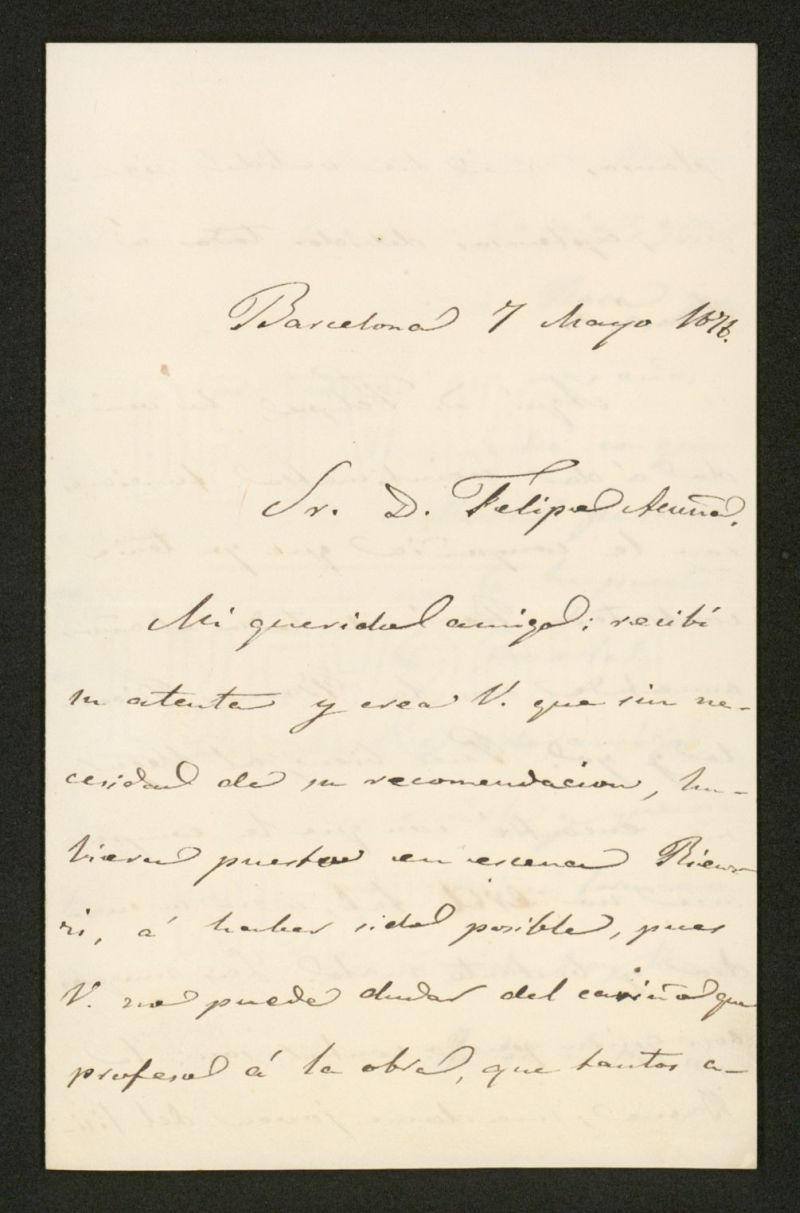 Barcelona 7 Mayo 1876.
Sr. D. Felipe Acuña.
Mi querido amigo: recibí
su atenta y crea V. que sin ne-
cesidad de su recomendacion, hu-
biera puesto en escena Rienz-
zi, á haber sido posible, pues
V. no puede dudar del cariño que
profeso á la obra, que tantos a-